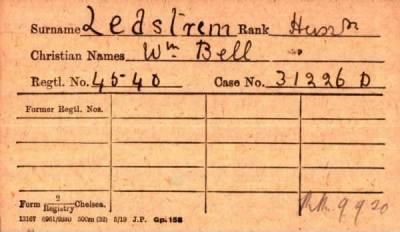 Surname Ledstrem Rank Hussr
Christian Names Wm Bell
Regtl. No. 4540 Case No. 31226 D
Former Regtl. Nos.
Form 2/Registry Chelsea.
R.R. 9 9 20
13167 6961/9380 500m (32) 5/19 J.P. Gp. 158